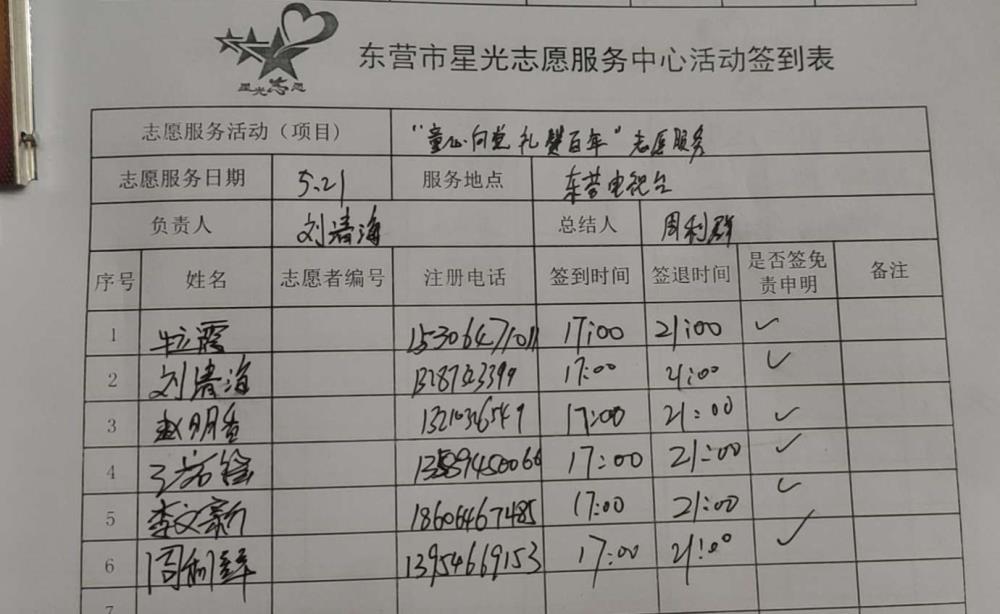 星光志愿
东营市星光志愿服务中心活动签到表
志愿服务活动（项目) "童心向党 礼赞百年"志愿服务
志愿服务日期 5.21 服务地点 东营电视台
负责人 刘涛海 总结人 周利群
序号 姓名 志愿者编号 注册电话 签到时间 签退时间 是否签免责申明 备注
1 霞 15306471011 17:00 21:00 ✓
2 刘涛海 17:00 21:00 ✓
3 赵明香 17:00 21:00 ✓
4 17:00 21:00 ✓
5 李文新 18606467485 17:00 21:00 ✓
6 周利群 13954669153 17:00 21:00 ✓
7